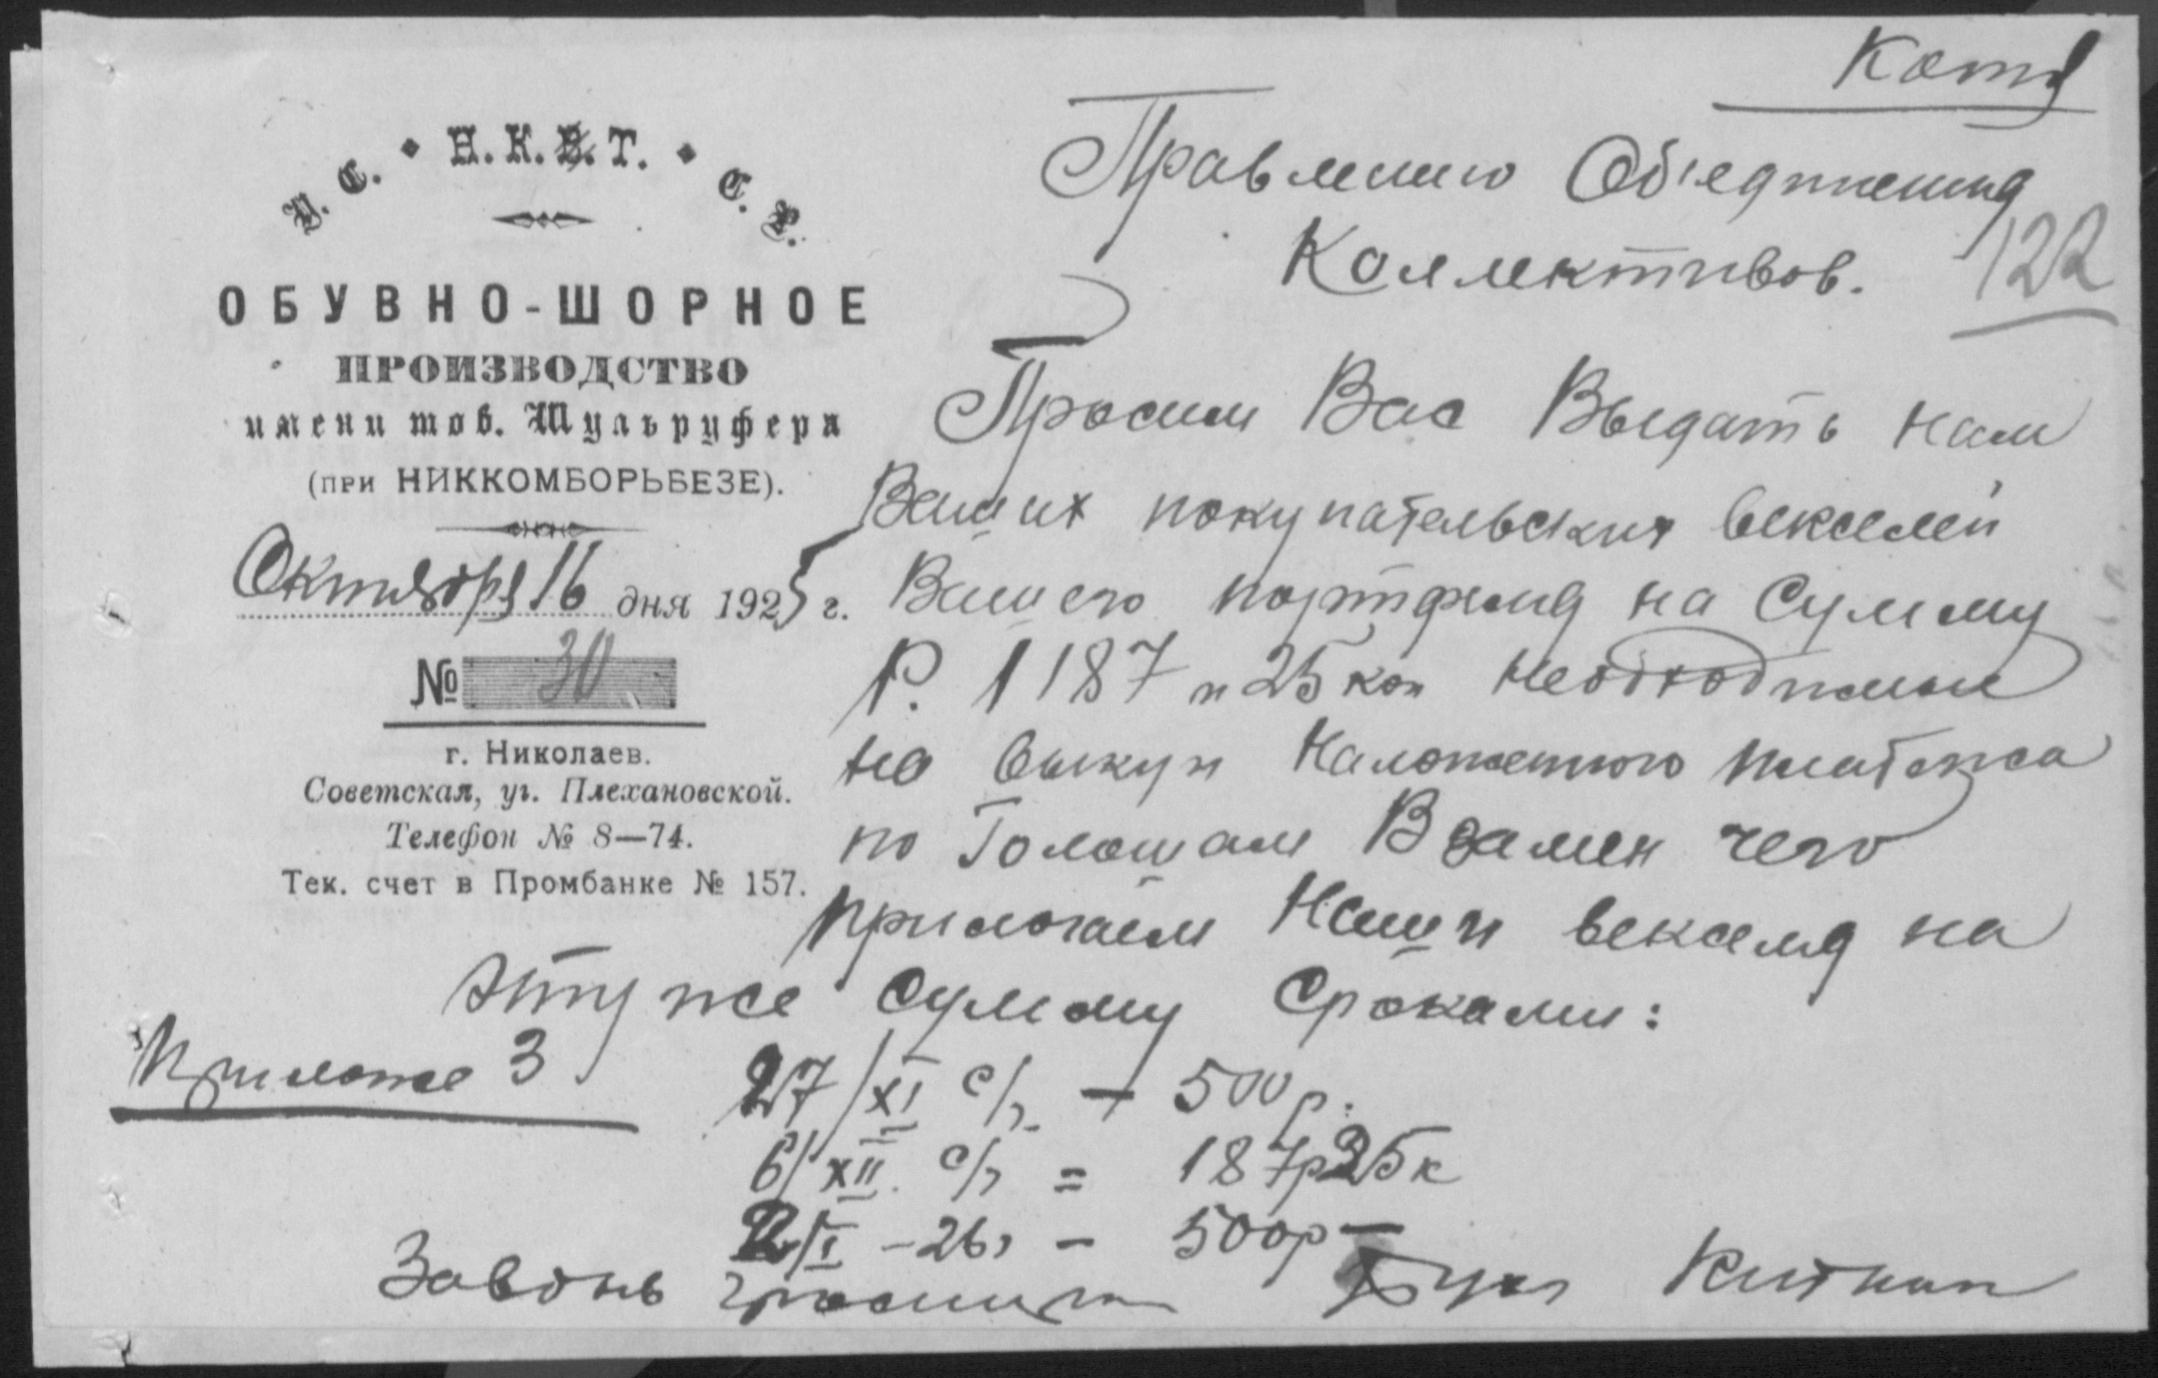 У. С. Н. К. В. Т. С. Р.
ОБУВНО-ШОРНОЕ
ПРОИЗВОДСТВО
имени тов. Шульруфера
(при НИККОМБОРЬБЕЗЕ).
Октября 16 дня 1925 г.
№ 30
г. Николаев.
Советская, уг. Плехановской.
Телефон № 8—74.
Тек. счет в Промбанке № 157.
Копия
Правлению Об'единения
Коллективов.
122
Просим Вас Выдать нам
Ваших покупательских векселей
Вашего портфеля на Сумму
Р. 1187 и 25 коп необходимые
на выкуп Наложенного платежа
по Галошам Взамен чего
прилогаем Наши векселя на
эту же сумму Сроками:
Приложе 3
27/XI с/г — 500р.
6/XII с/г = 187р25к
2/I - 26г - 500р —
Завонь Бух